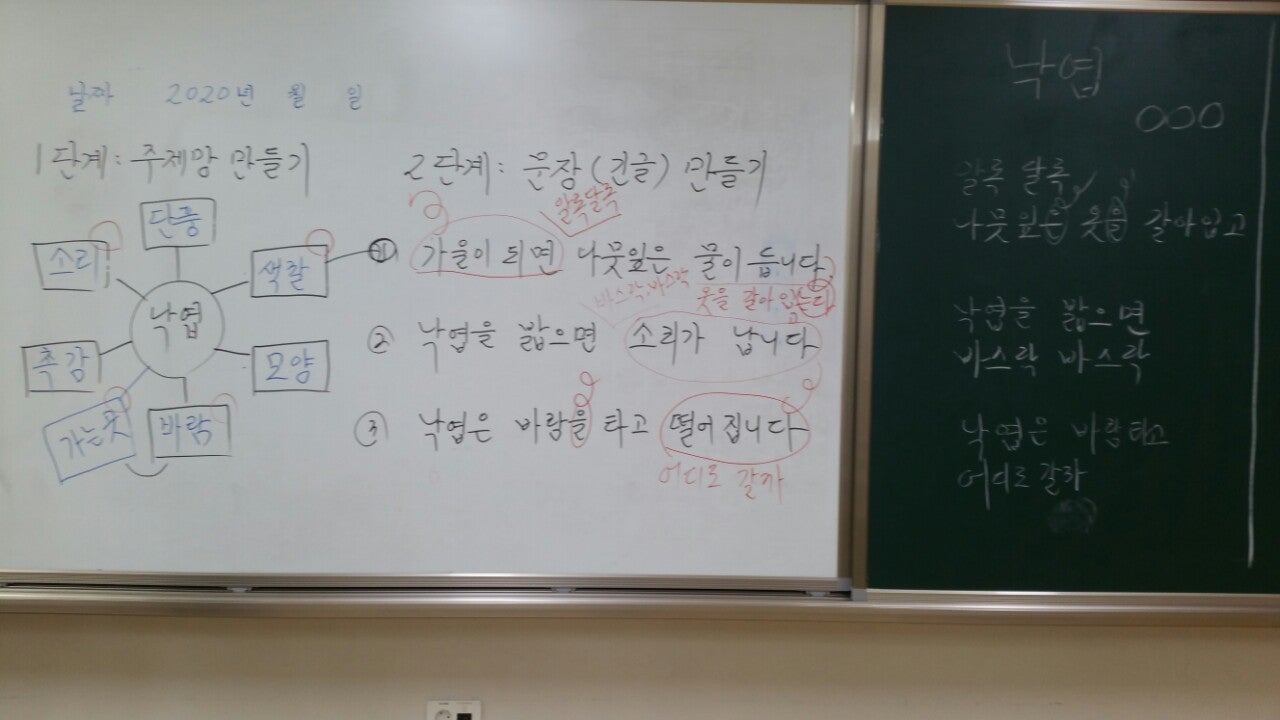 날짜 2020년 월 일
1단계: 주제망 만들기
단풍
소리
색깔
낙엽
촉감
모양
가는 곳
바람
2단계: 문장(긴글) 만들기
알록달록
① 가을이 되면 나뭇잎은 물이 듭니다.
바스락, 바스락 옷을 갈아입는다
② 낙엽을 밟으면 소리가 납니다
③ 낙엽은 바람을 타고 떨어집니다
어디로 갈까
낙엽
○○○
알록 달록
나뭇잎은 옷을 갈아입고
낙엽을 밟으면
바스락 바스락
낙엽은 바람타고
어디로 갈까